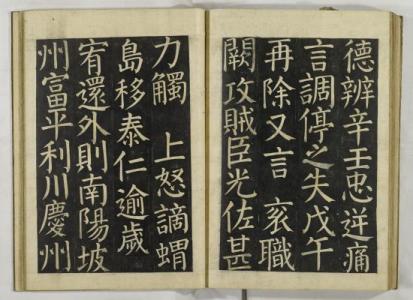 德辨辛壬忠逆痛
言調停之失戊午
再除又言　亥職
闕攻賊臣光佐甚
力觸　上怒謫蝟
島移泰仁逾歲
宥還外則南陽坡
州富平利川慶州